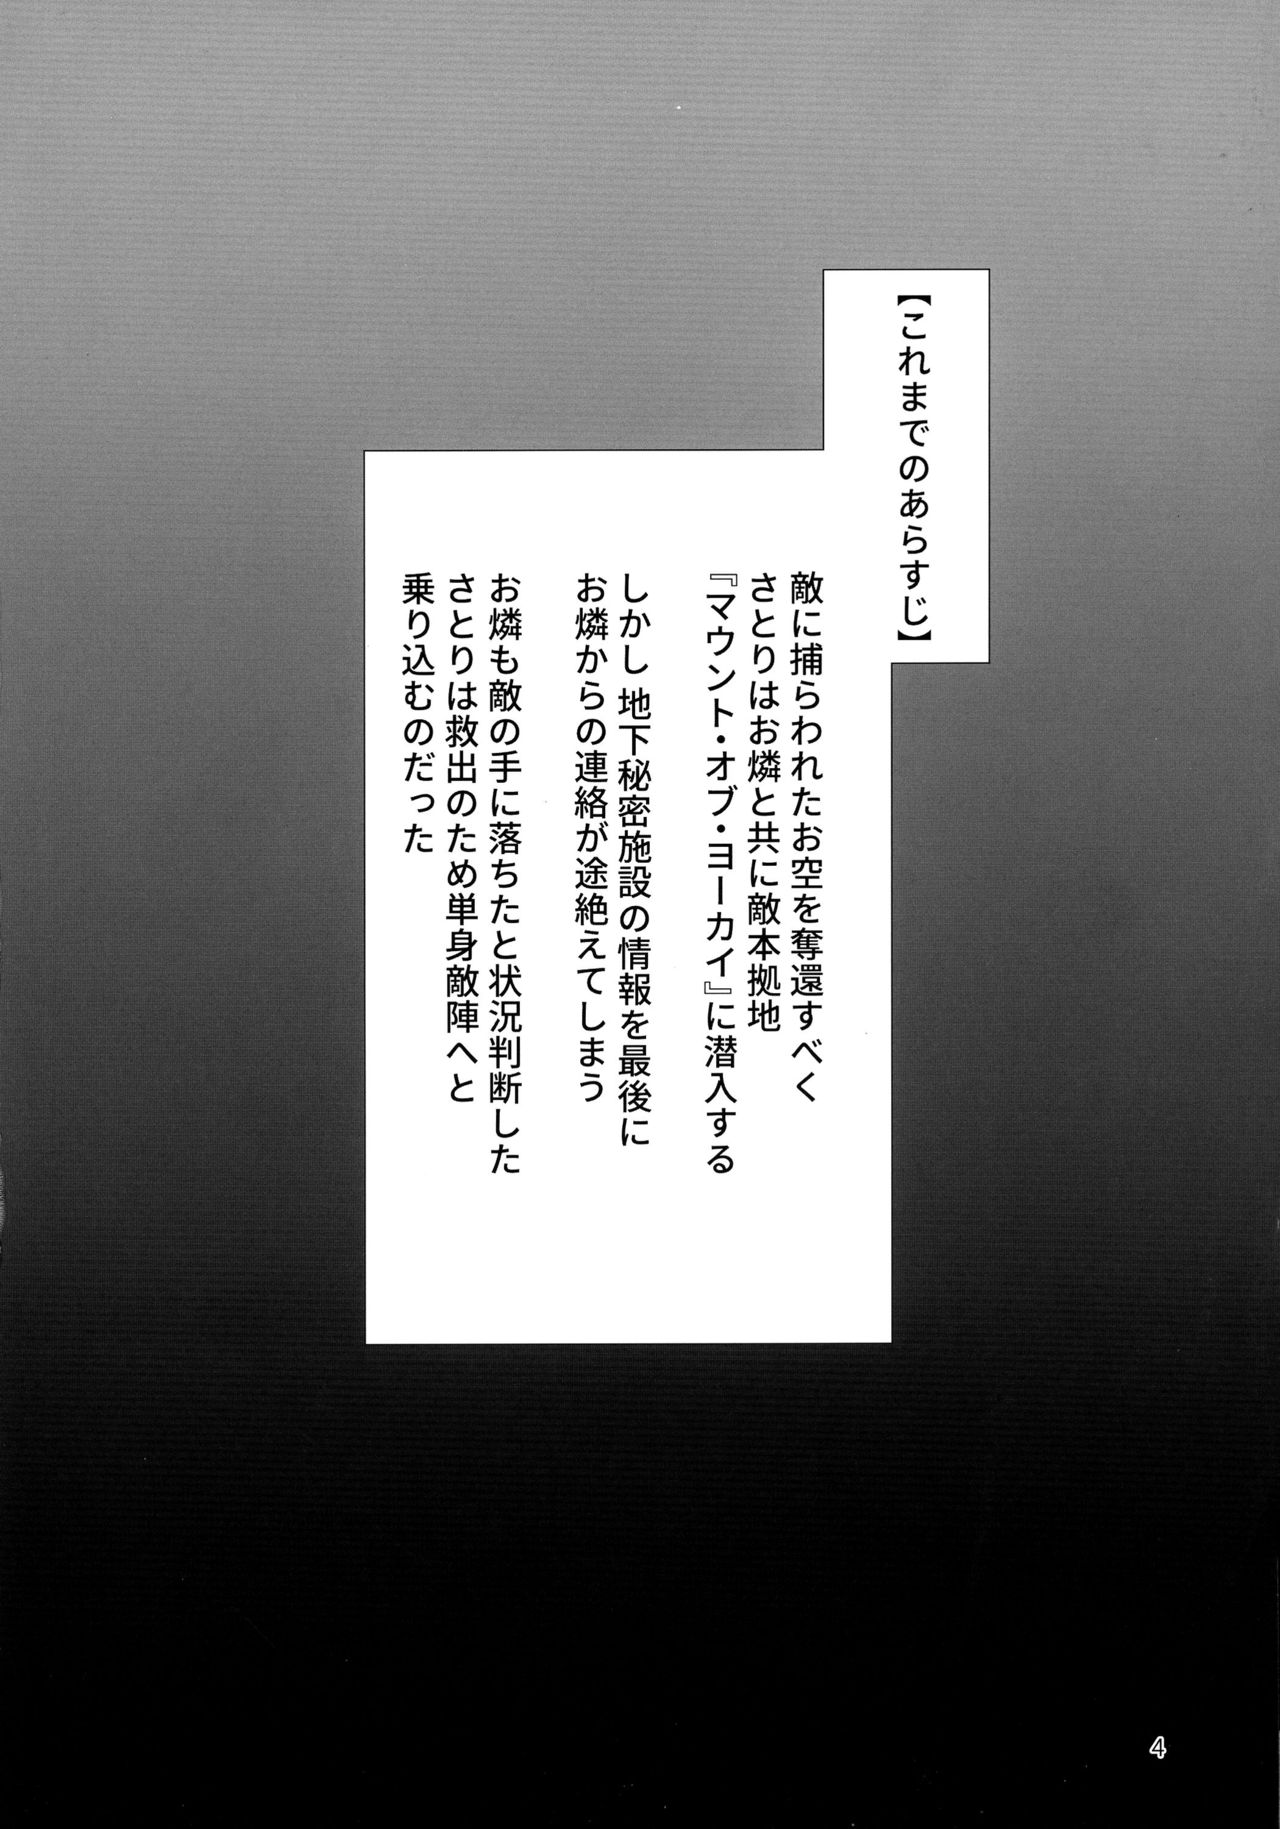 【これまでのあらすじ】
敵に捕らわれたお空を奪還すべく
さとりはお燐と共に敵本拠地
『マウント・オブ・ヨーカイ』に潜入する
しかし 地下秘密施設の情報を最後に
お燐からの連絡が途絶えてしまう
お燐も敵の手に落ちたと状況判断した
さとりは救出のため単身敵陣へと
乗り込むのだった
4